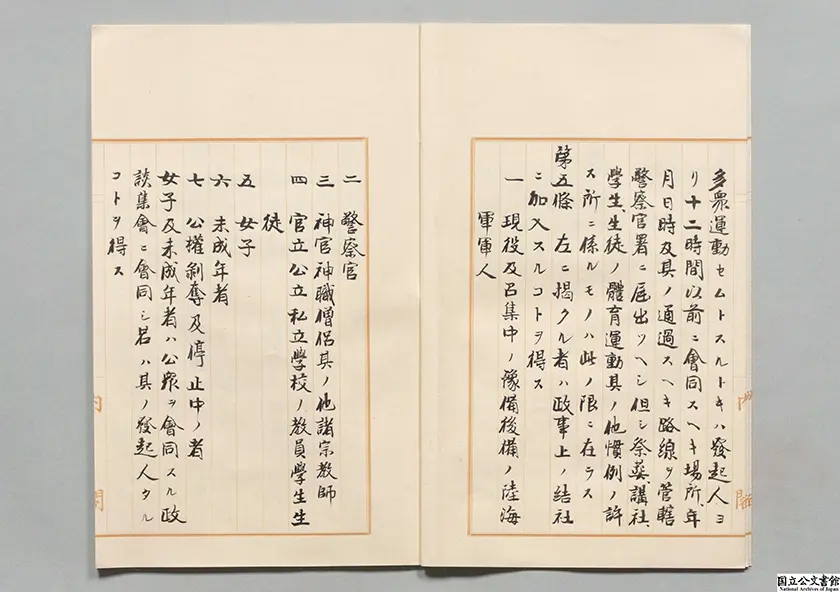 多衆運動セムトスルトキハ發起人ヨ
リ十二時間以前ニ會同スヘキ場所、年
月日時及其ノ通過スヘキ路線ヲ管轄
警察官署ニ届出ツヘシ但シ祭葬、講社、
學生、生徒ノ體育運動其ノ他慣例ノ許
ス所ニ係ルモノハ此ノ限ニ在ラス
第五條 左ニ掲クル者ハ政事上ノ結社
ニ加入スルコトヲ得ス
一 現役及召集中ノ豫備後備ノ陸海
軍軍人
二 警察官
三 神官神職僧侶其ノ他諸宗教師
四 官立公立私立學校ノ教員學生生
徒
五 女子
六 未成年者
七 公權剝奪及停止中ノ者
女子及未成年者ハ公衆ヲ會同スル政
談集會ニ會同シ若ハ其ノ發起人タル
コトヲ得ス
内
閣
内
閣
国立公文書館
National Archives of Japan